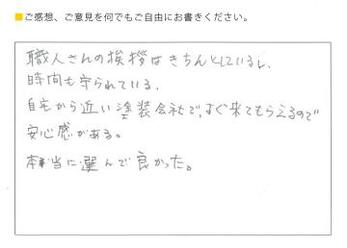 ■ご感想、ご意見を何でもご自由にお書きください。
職人さんの挨拶はきちんとしているし、
時間も守られている。
自宅から近い塗装会社で、すぐ来てもらえるので
安心感がある。
本当に選んで良かった。